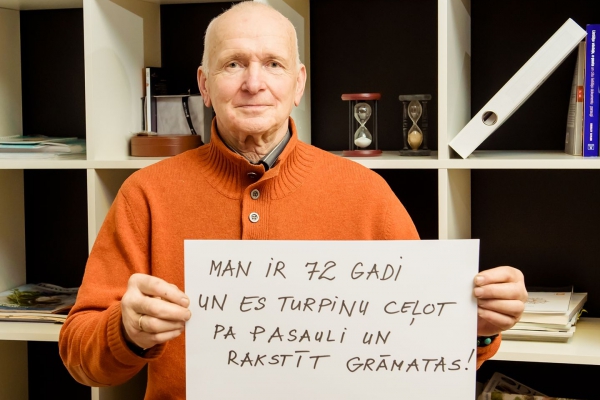 MAN IR 72 GADI
UN ES TURPINU CEĻOT
PA PASAULI UN
RAKSTĪT GRĀMATAS!